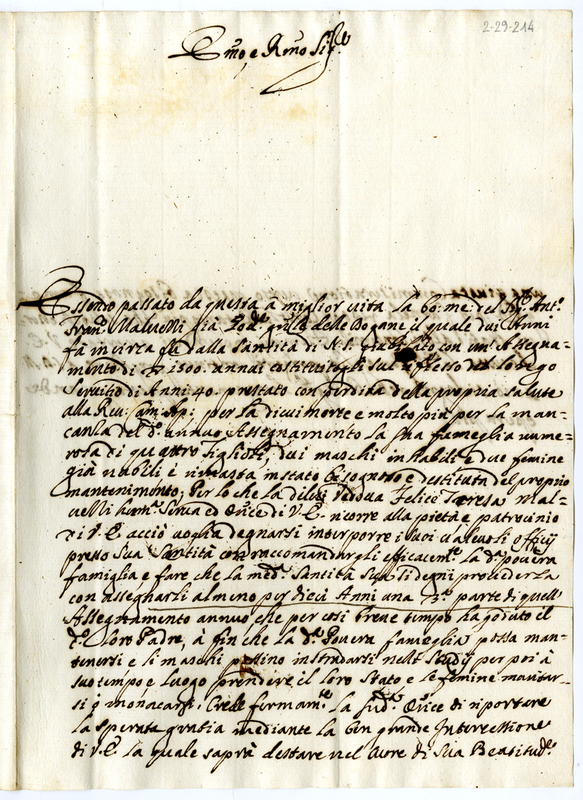 2-29-214
Em̃o, e Rm̃o Sig.re
Essendo passato da questa à miglior vita la bo: me: del Sig.r Ant.o
Fran.co Maluelli già delle Dogane il quale dui Anni
fà in circa fù dalla Santità di N. S. giubilato con un' Assegna-
mento di 1500. annui costituitogli sul riflesso del longo
Seruitio di Anni 40. prestato con perdita della propria salute
alla Reu: per la di lui morte e molto più per la man-
canza del d.o annuo Assegnamento la sua fameglia nume-
rosa di quattro figlioli, dui maschi in habili e due femine
già nubili è rimasta in stato bisognoso e destituta del proprio
mantenimento; Per lo che la di lui Vedova Felice Teresa Mal-
uelli hum.ma Serua ed Or.ice di V. E. ricorre alla pietà e patrocinio
di V. E. acciò voglia degnarsi interporre i suoi valeuoli officij
presso Sua Santità con raccomandargli efficacem.te la d.a pouera
famiglia e fare che la med.a Santità Sua si degni prouederla
con assegnarli almeno per dieci Anni una 3.a parte di quell'
Assegnamento annuo che per così breue tempo ha goduto il
d.o loro Padre, à fin che la d.a Pouera fameglia possa man-
tenersi e li maschi possino instradarsi nelli Studij per poi à
suo tempo, e luogo prendere il loro Stato e le femine maritar-
si ò monacarsi, Crede fermam.te la sud.a Or.ice di riportare
la sperata gratia mediante la ben grande Intercessione
di V. E. la quale saprà destare nel Cuore di Sua Beatitud.e